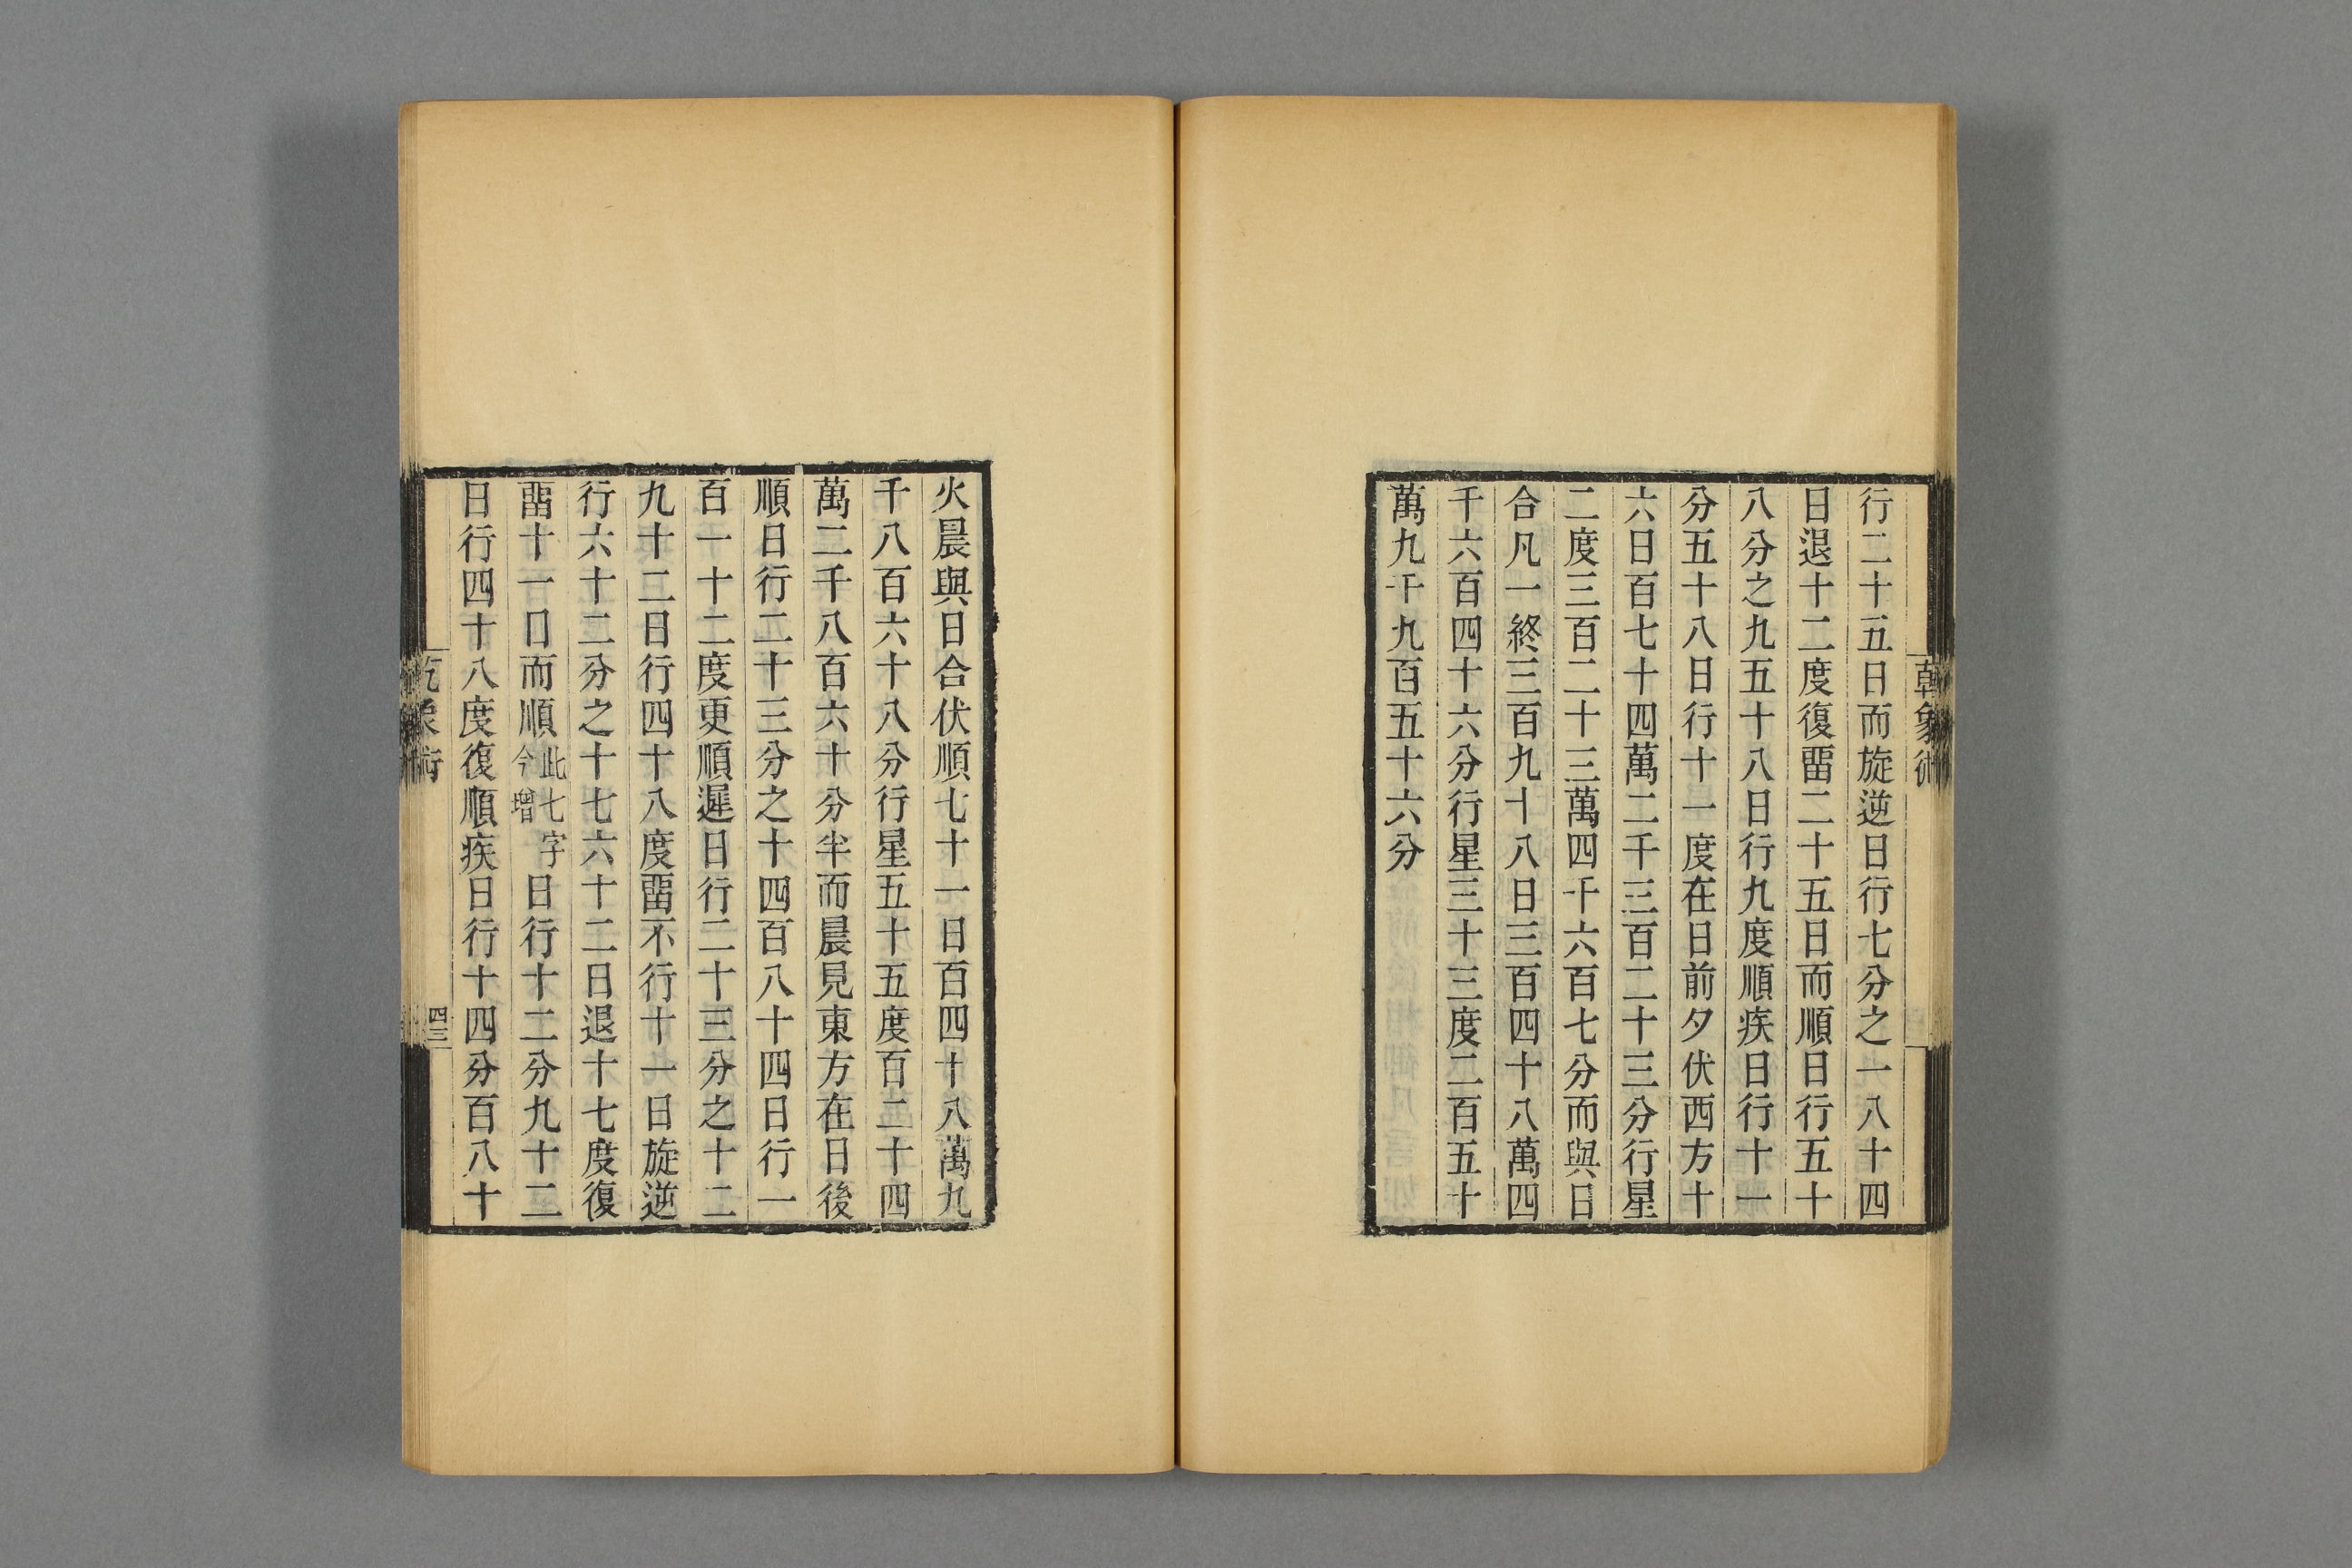 行二十五日而旋逆日行七分之一八十四
日退十二度復畱二十五日而順日行五十
八分之九五十八日行九度順疾日行十一
分五十八日行十一度在日前夕伏西方十
六日百七十四萬二千三百二十三分行星
二度三百二十三萬四千六百七分而與日
合凡一終三百九十八日三百四十八萬四
千六百四十六分行星三十三度二百五十
萬九千九百五十六分
火晨與日合伏順七十一日百四十八萬九
千八百六十八分行星五十五度百二十四
萬二千八百六十分半而晨見東方在日後
順日行二十三分之十四百八十四日行一
百一十二度更順遲日行二十三分之十二
九十二日行四十八度畱不行十一日旋逆
行六十二分之十七六十二日退十七度復
畱十一日而順此七字今增日行十二分九十二
日行四十八度復順疾日行十四分百八十
乾象術
四三